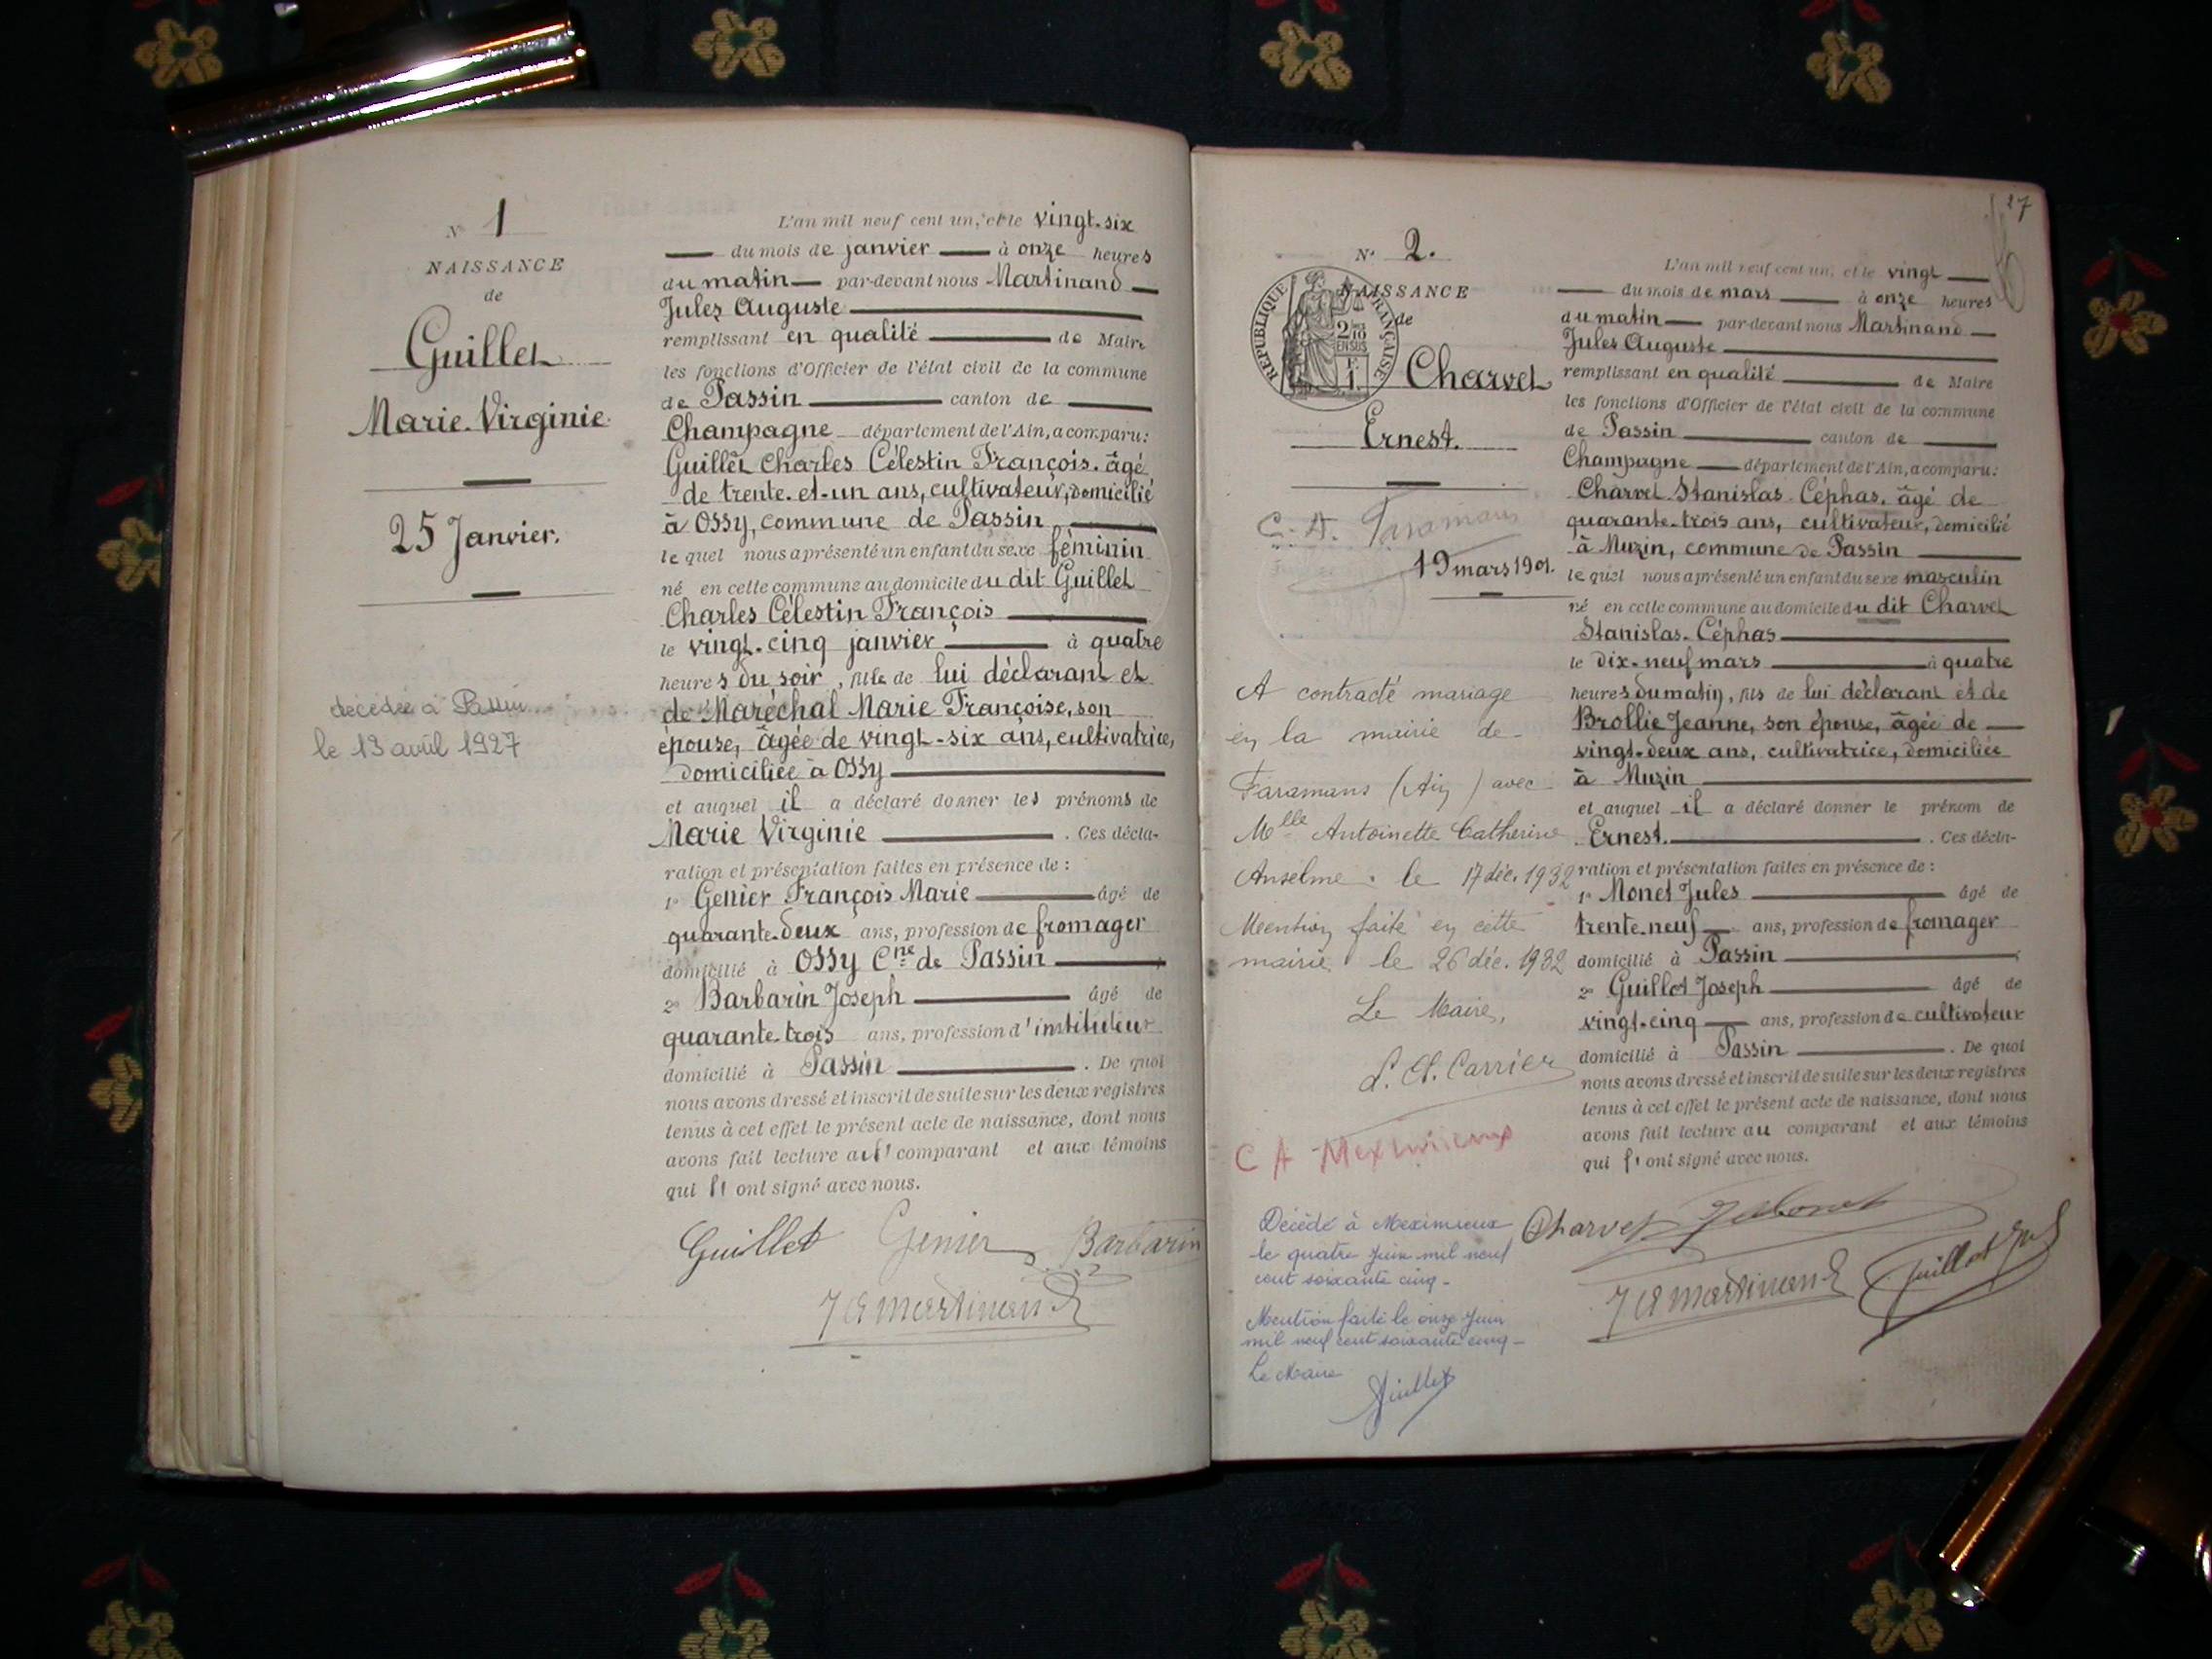 N° 1
NAISSANCE
de
Guillet
Marie-Virginie
25 Janvier.
décédée à Passin
le 13 avril 1927
L'an mil neuf cent un, et le vingt-six
du mois de janvier à onze heures
du matin par-devant nous Martinand
Jules Auguste
remplissant en qualité de Maire
les fonctions d'Officier de l'état civil de la commune
de Passin canton de
Champagne département de l'Ain, a comparu:
Guillet Charles Célestin François. âgé
de trente-et-un ans, cultivateur, domicilié
à Ossy, commune de Passin
le quel nous a présenté un enfant du sexe féminin
né en cette commune au domicile du dit Guillet
Charles Célestin François
le vingt-cinq janvier à quatre
heures du soir, fille de lui déclarant et
de Maréchal Marie Françoise, son
épouse, âgée de vingt-six ans, cultivatrice,
domiciliée à Ossy
et auquel il a déclaré donner les prénoms de
Marie Virginie. Ces décla-
ration et présentation faites en présence de :
1° Genier François Marie âgé de
quarante-deux ans, profession de fromager
domicilié à Ossy Cne de Passin
2° Barbarin Joseph âgé de
quarante-trois ans, profession d'instituteur
domicilié à Passin. De quoi
nous avons dressé et inscrit de suite sur les deux registres
tenus à cet effet le présent acte de naissance, dont nous
avons fait lecture au comparant et aux témoins
qui l'ont signé avec nous.
Guillet Genier Barbarin
J A Martinand
27
N° 2.
NAISSANCE
de
RÉPUBLIQUE FRANÇAISE
2/10 EN SUS
Charvet
Ernest.
C. A. Faramans
19 mars 1901.
A contracté mariage
en la mairie de
Faramans (Ain) avec
Melle Antoinette Catherine
Anselme. le 17 déc. 1932
Mention faite en cette
mairie le 26 déc. 1932
Le Maire,
L. A. Carrier
C A Meximieux
Décédé à Meximieux
le quatre Juin mil neuf
cent soixante cinq -
Mention faite le onze Juin
mil neuf cent soixante cinq -
Le Maire
Guillet
L'an mil neuf cent un, et le vingt
du mois de mars à onze heures
du matin par-devant nous Martinand
Jules Auguste
remplissant en qualité de Maire
les fonctions d'Officier de l'état civil de la commune
de Passin canton de
Champagne département de l'Ain, a comparu:
Charvet Stanislas-Céphas. âgé de
quarante-trois ans, cultivateur, domicilié
à Muzin, commune de Passin
le quel nous a présenté un enfant du sexe masculin
né en cette commune au domicile du dit Charvet
Stanislas-Céphas
le dix-neuf mars à quatre
heures du matin, fils de lui déclarant et de
Brollie Jeanne, son épouse, âgée de
vingt-deux ans, cultivatrice, domiciliée
à Muzin
et auquel il a déclaré donner le prénom de
Ernest. Ces décla-
ration et présentation faites en présence de :
1° Monet Jules âgé de
trente-neuf ans, profession de fromager
domicilié à Passin
2° Guillot Joseph âgé de
vingt-cinq ans, profession de cultivateur
domicilié à Passin. De quoi
nous avons dressé et inscrit de suite sur les deux registres
tenus à cet effet le présent acte de naissance, dont nous
avons fait lecture au comparant et aux témoins
qui l'ont signé avec nous.
Charvet J Monet
J A Martinand Guillot